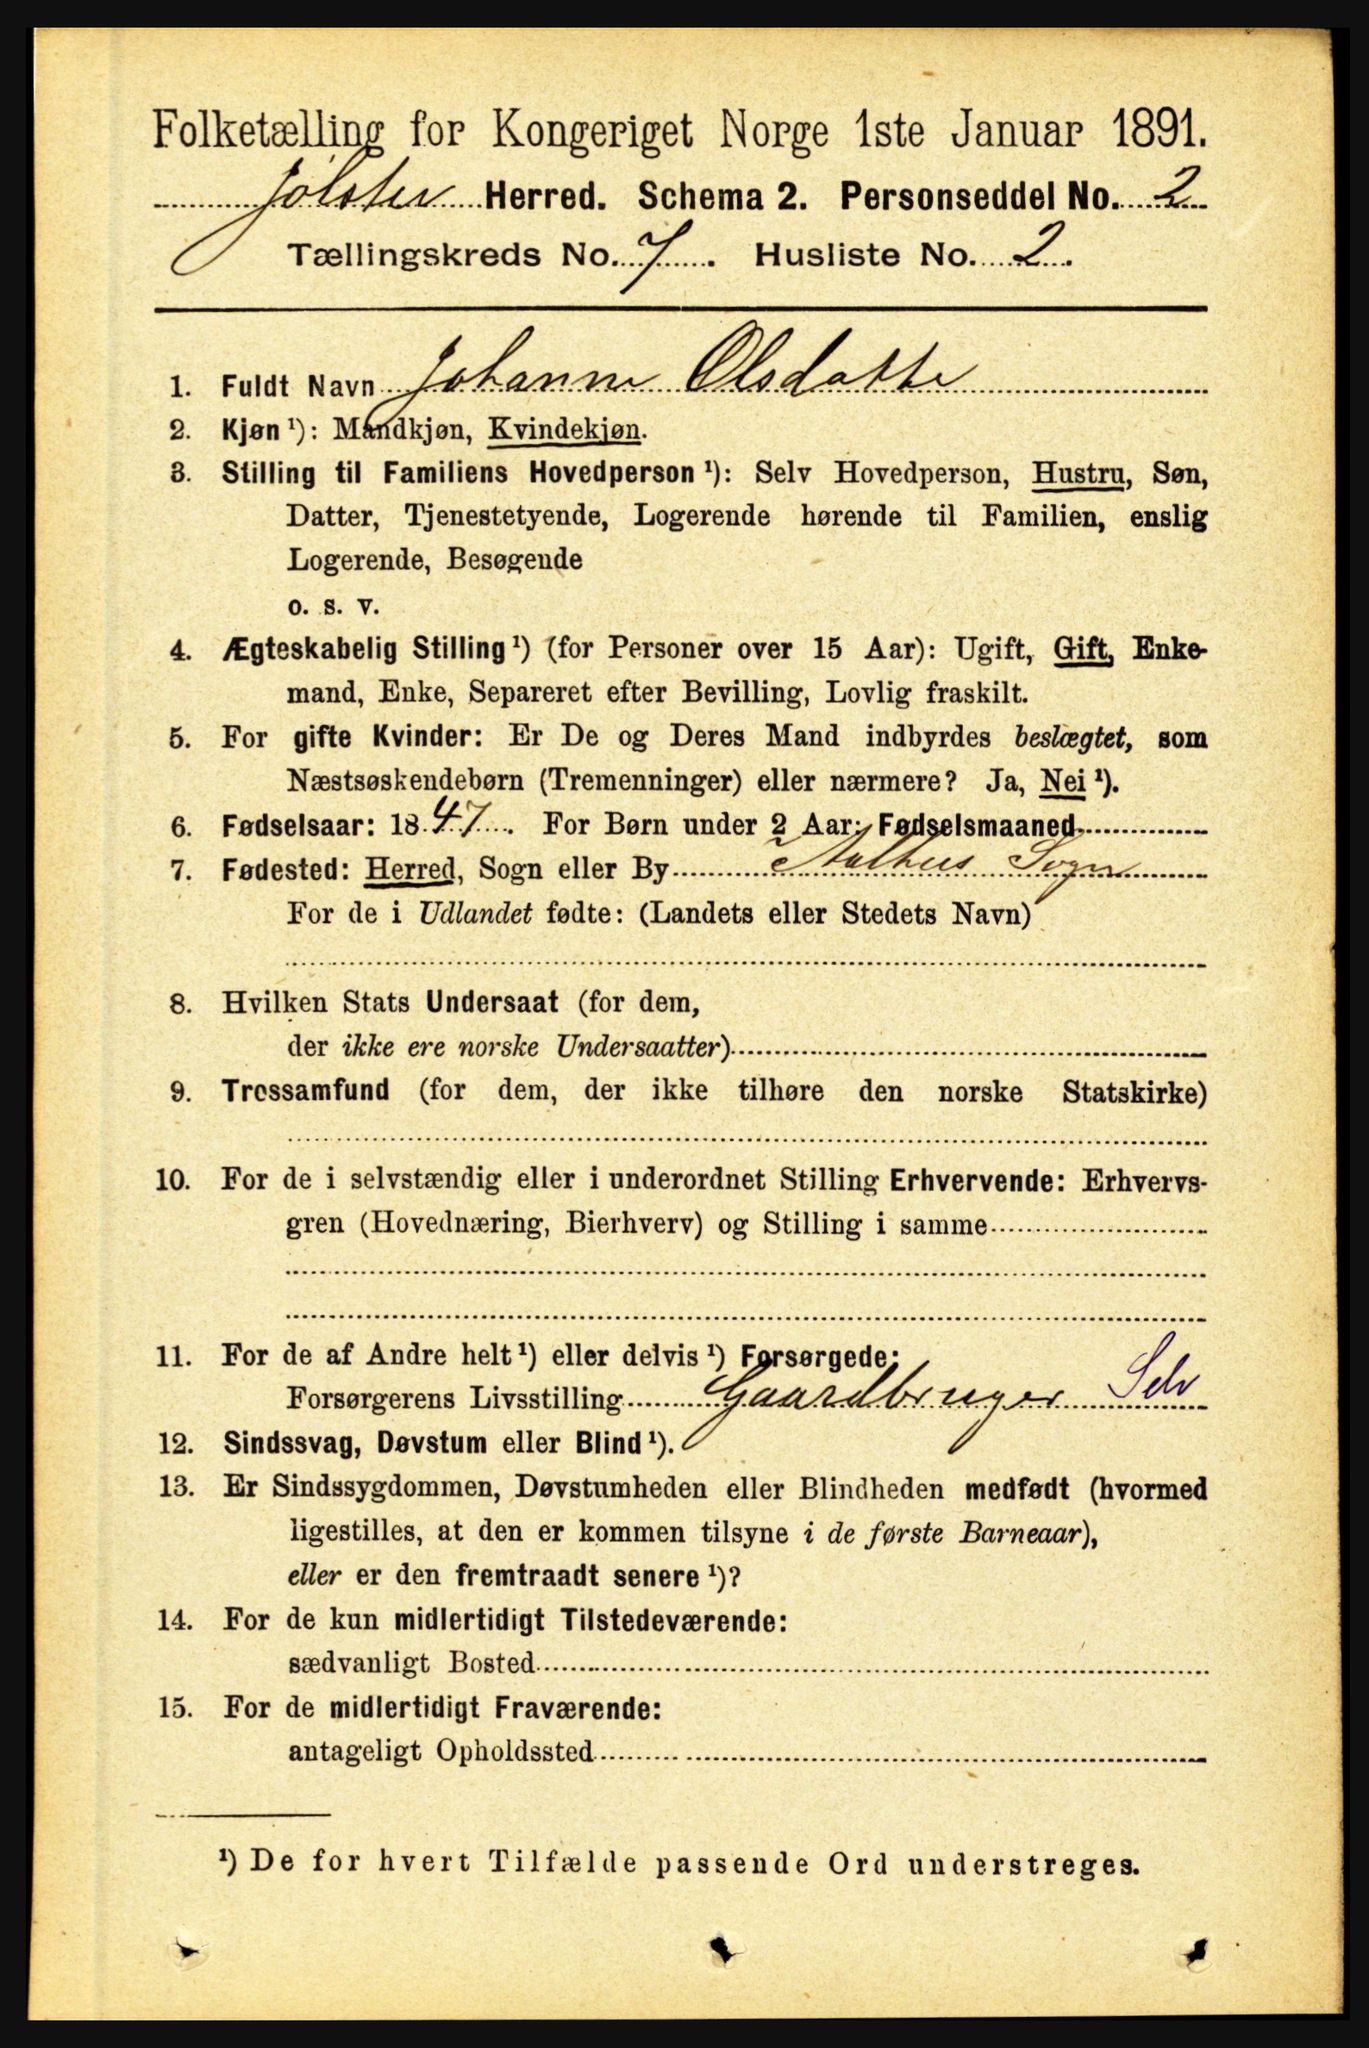 Folketælling for Kongeriget Norge 1ste Januar 1891.
Jølster Herred. Schema 2. Personseddel No. 2
Tællingskreds No. 7. Husliste No. 2.
1. Fuldt Navn Johanne Olsdatte
2. Kjøn ¹): Mandkjøn, Kvindekjøn.
3. Stilling til Familiens Hovedperson ¹): Selv Hovedperson, Hustru, Søn,
Datter, Tjenestetyende, Logerende hørende til Familien, enslig
Logerende, Besøgende
o. s. v.
4. Ægteskabelig Stilling ¹) (for Personer over 15 Aar): Ugift, Gift, Enke-
mand, Enke, Separeret efter Bevilling, Lovlig fraskilt.
5. For gifte Kvinder: Er De og Deres Mand indbyrdes beslægtet, som
Næstsøskendebørn (Tremenninger) eller nærmere? Ja, Nei ¹).
6. Fødselsaar: 1847. For Børn under 2 Aar: Fødselsmaaned
7. Fødested: Herred, Sogn eller By Aalhus Sogn
For de i Udlandet fødte: (Landets eller Stedets Navn)
8. Hvilken Stats Undersaat (for dem,
der ikke ere norske Undersaatter)
9. Trossamfund (for dem, der ikke tilhøre den norske Statskirke)
10. For de i selvstændig eller i underordnet Stilling Erhvervende: Erhvervs-
gren (Hovednæring, Bierhverv) og Stilling i samme
11. For de af Andre helt ¹) eller delvis ¹) Forsørgede:
Forsørgerens Livsstilling Gaardbruger Selv
12. Sindssvag, Døvstum eller Blind ¹).
13. Er Sindssygdommen, Døvstumheden eller Blindheden medfødt (hvormed
ligestilles, at den er kommen tilsyne i de første Barneaar),
eller er den fremtraadt senere ¹)?
14. For de kun midlertidigt Tilstedeværende:
sædvanligt Bosted
15. For de midlertidigt Fraværende:
antageligt Opholdssted
¹) De for hvert Tilfælde passende Ord understreges.